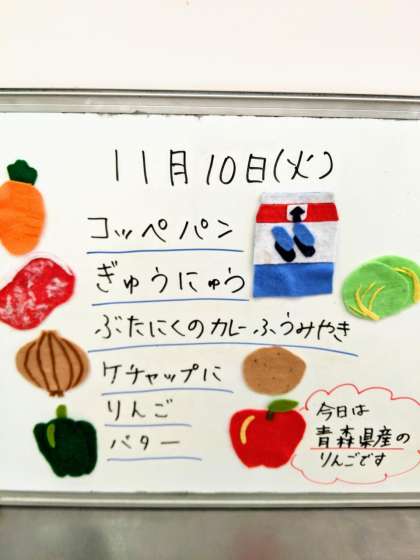 11月10日(火)
コッペパン
ぎゅうにゅう
ぶたにくのカレーふうみやき
ケチャップに
りんご
バター
今日は
青森県産の
りんごです